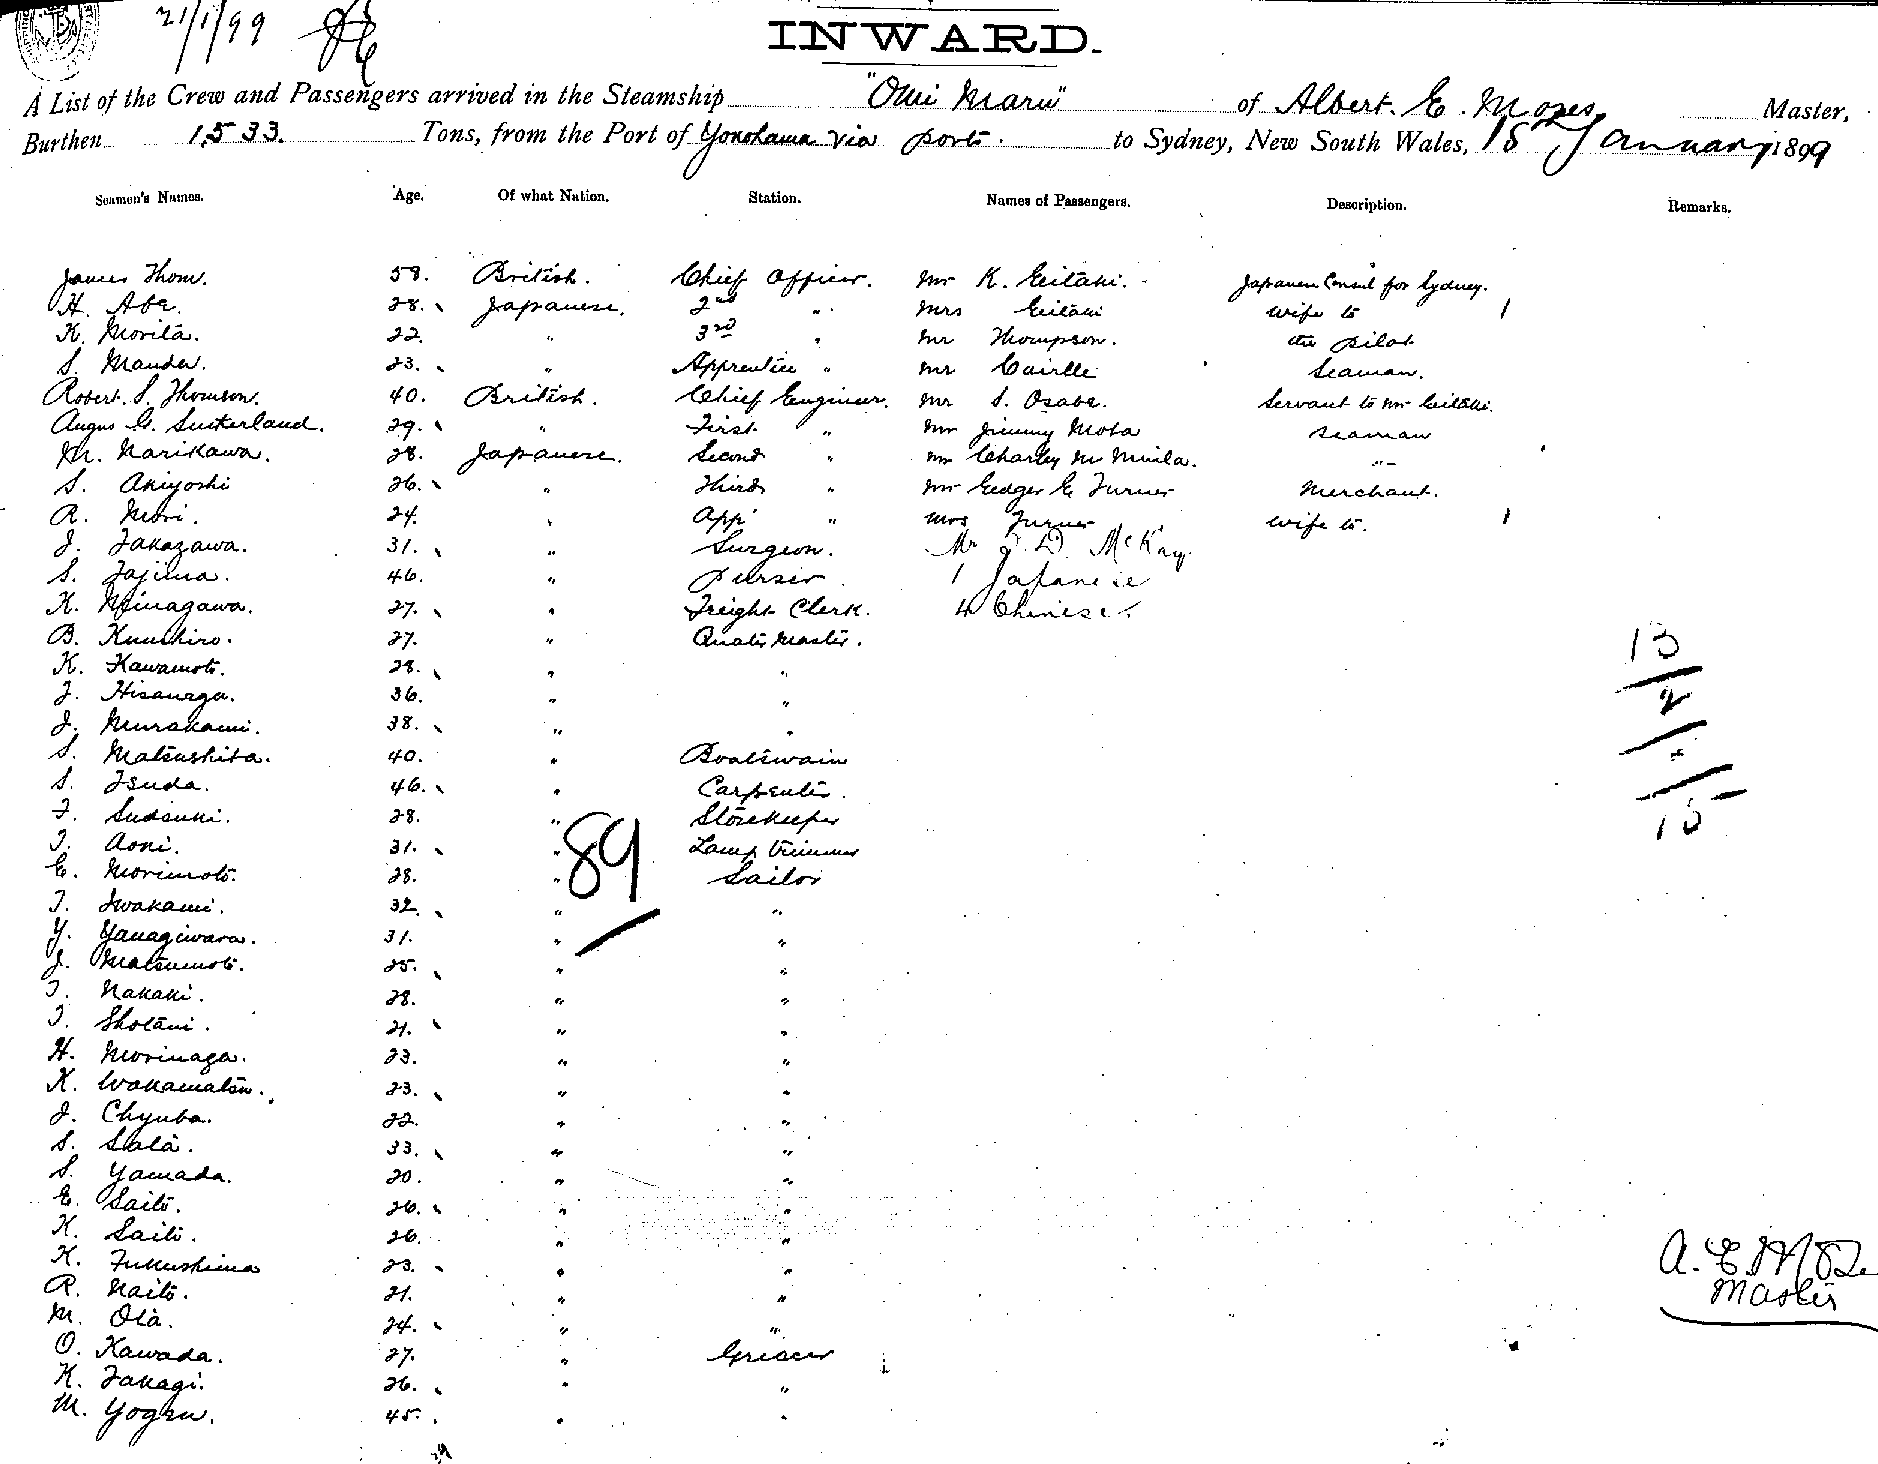 21/1/99
INWARD.
A List of the Crew and Passengers arrived in the Steamship "Omi Maru" of Albert. E. Moses Master,
Burthen 1,533. Tons, from the Port of Yokohama via ports. to Sydney, New South Wales, 18 January 1899
Seamen's Names. Age. Of what Nation. Station. Names of Passengers. Description. Remarks.
James Thom. 58. British. Chief Officer. Mr K. Eitaki. Japanese Consul for Sydney.
H. Abe. 28. Japanese. 2nd " Mrs Eitaki wife to 1
K. Morita. 22. " 3rd " Mr Thompson. the pilot
S. Mander. 23. " Apprentice " Mr Seaman.
Robert. S. Thomson. 40. British. Chief Engineer. Mr S. Osabe. Servant to Mr Eitaki.
Angus G. Sutherland. 29. " First " Mr Jimmy Mota Seaman
M. Narikawa. 28. Japanese. Second " Mr Charley M. -"-
S. Akiyoshi 26. " Third " Mr E. Turner Merchant.
R. Mori. 24. " App " Mrs Turner wife to. 1
J. Takazawa. 31. " Surgeon. Mr J. D. McKay
S. Tajima. 46. " Purser 1 Japanese
K. Minagawa. 27. " Freight Clerk. 4 Chinese.
B. Kunihiro. 27. " Quater Master.
K. Kawamoto. 28. " "
J. 36. " "
J. Murakami. 38. " "
S. Matsushita. 40. " Boatswain
S. Tsuda. 46. " Carpenter.
T. Sudsuki. 28. " Storekeeper
T. Aoki. 31. " Lamp trimmer
E. Morimoto. 28. " Sailor
T. Iwakami. 32. " "
Y. Yanagiwara. 31. " "
J. Matsumoto. 25. " "
T. Nakaki. 28. " "
T. Shotani. 21. " "
H. Morinaga. 23. " "
K. Wakamatsu. 23. " "
J. Chyuba. 22. " "
S. Sala. 33. " "
S. Yamada. 20. " "
E. Saito. 26. " "
K. Saito. 26. " "
K. Fukushima 23. " "
R. Naito. 21. " "
M. Ota. 24. " "
O. Kawada. 27. " Greaser
K. Takagi. 26. " "
M. Yogen. 45. " "
89
13
2
15
A. E. Moses
Master